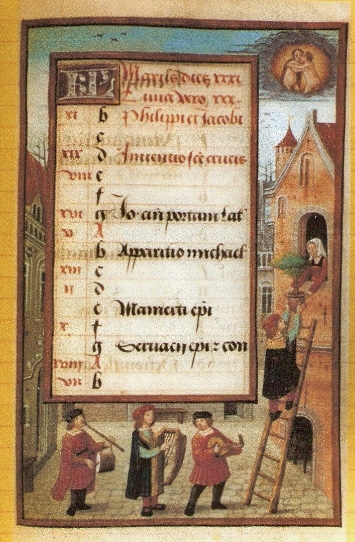 KL Maius dies xxxi
Luna vero xxx.
xi b Philippi et Jacobi
c
xix d Inuentio scē crucis
viii e
f
xvi g Jo. añ portam lat
v A
b Apparitio michael
xiii c
ii d
e Mamerti epi
x f
g Seruacii epi z con
xviii A
vii b